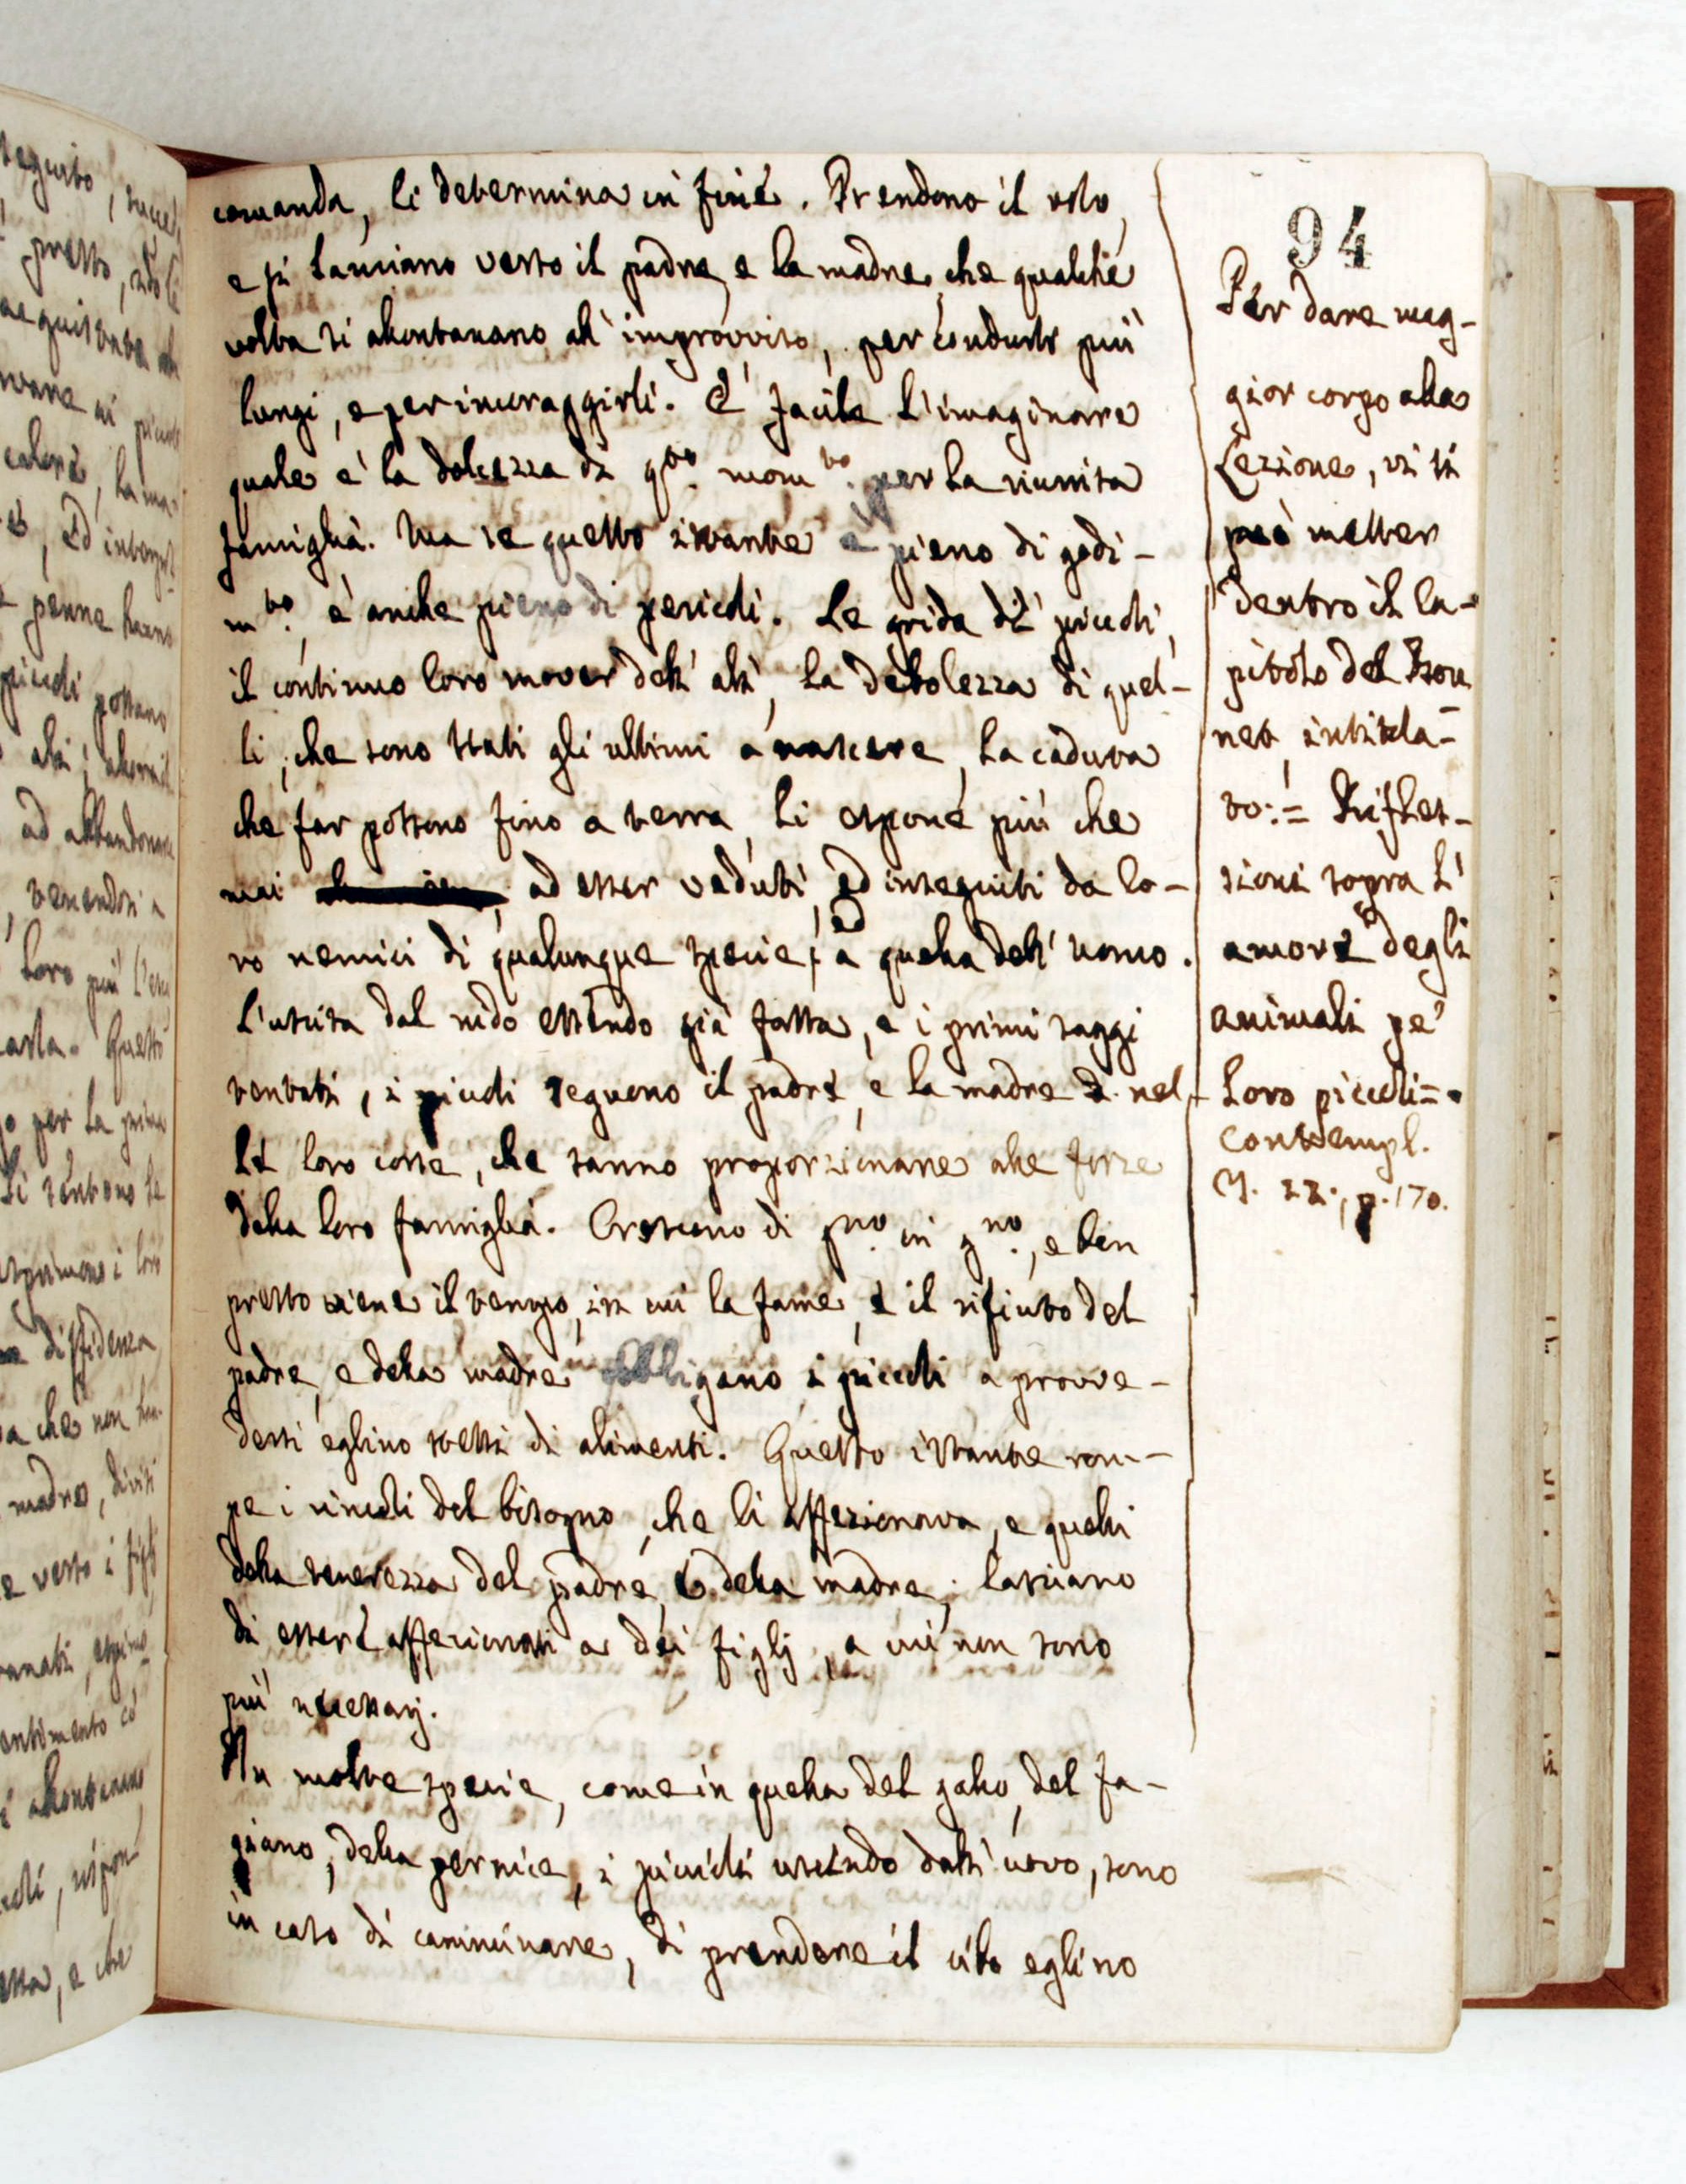 94
comanda, li determina in fine. Prendono il volo,
e si lanciano verso il padre, e la madre, che qualche
volta si allontanano all'improvviso, per condurli più
lungi, e per incoraggirli. È facile l'imaginare
quale è la dolcezza di q.to mom.to per la riunita
famiglia. Ma se questo istante è pieno di godi-
m.to, è anche pieno di pericoli. Le grida de' piccoli,
il continuo loro mover dell'ali, la debolezza di quel-
li, che sono stati gli ultimi a nascere, la caduta
che far possono fino a terra, li espone più che
mai ad esser veduti, ed inseguiti da lo-
ro nemici di qualunque specie, a quella dell'uomo.
L'uscita dal nido essendo già fatta, e i primi saggi
tentati, i piccoli seguono il padre, e la madre nel-
le loro corse, che sanno proporzionare alle forze
della loro famiglia. Crescono di g.no in g.no, e ben
presto viene il tempo, in cui la fame, e il rifiuto del
padre, e della madre obbligano i piccoli a provve-
dersi eglino stessi di alimenti. Questo istante rom-
pe i vincoli del bisogno, che li affezionava, e quelli
della tenerezza del padre, e della madre; lasciano
di essere affezionati a dei figlj, a cui non sono
più necessarj.
In molte specie, come in quella del gallo, del fa-
giano, della pernice, i piccoli uscendo dall'uovo, sono
in caso di camminare, di prendere il cibo eglino
Per dare mag-
gior corpo alla
Lezione, vi si
può metter
dentro il ca-
pitolo del Bon-
net, intitola-
to:= Rifles-
sioni sopra l'
amore degli
animali pe'
loro piccoli=.
Contempl.
T. 22., p. 170.